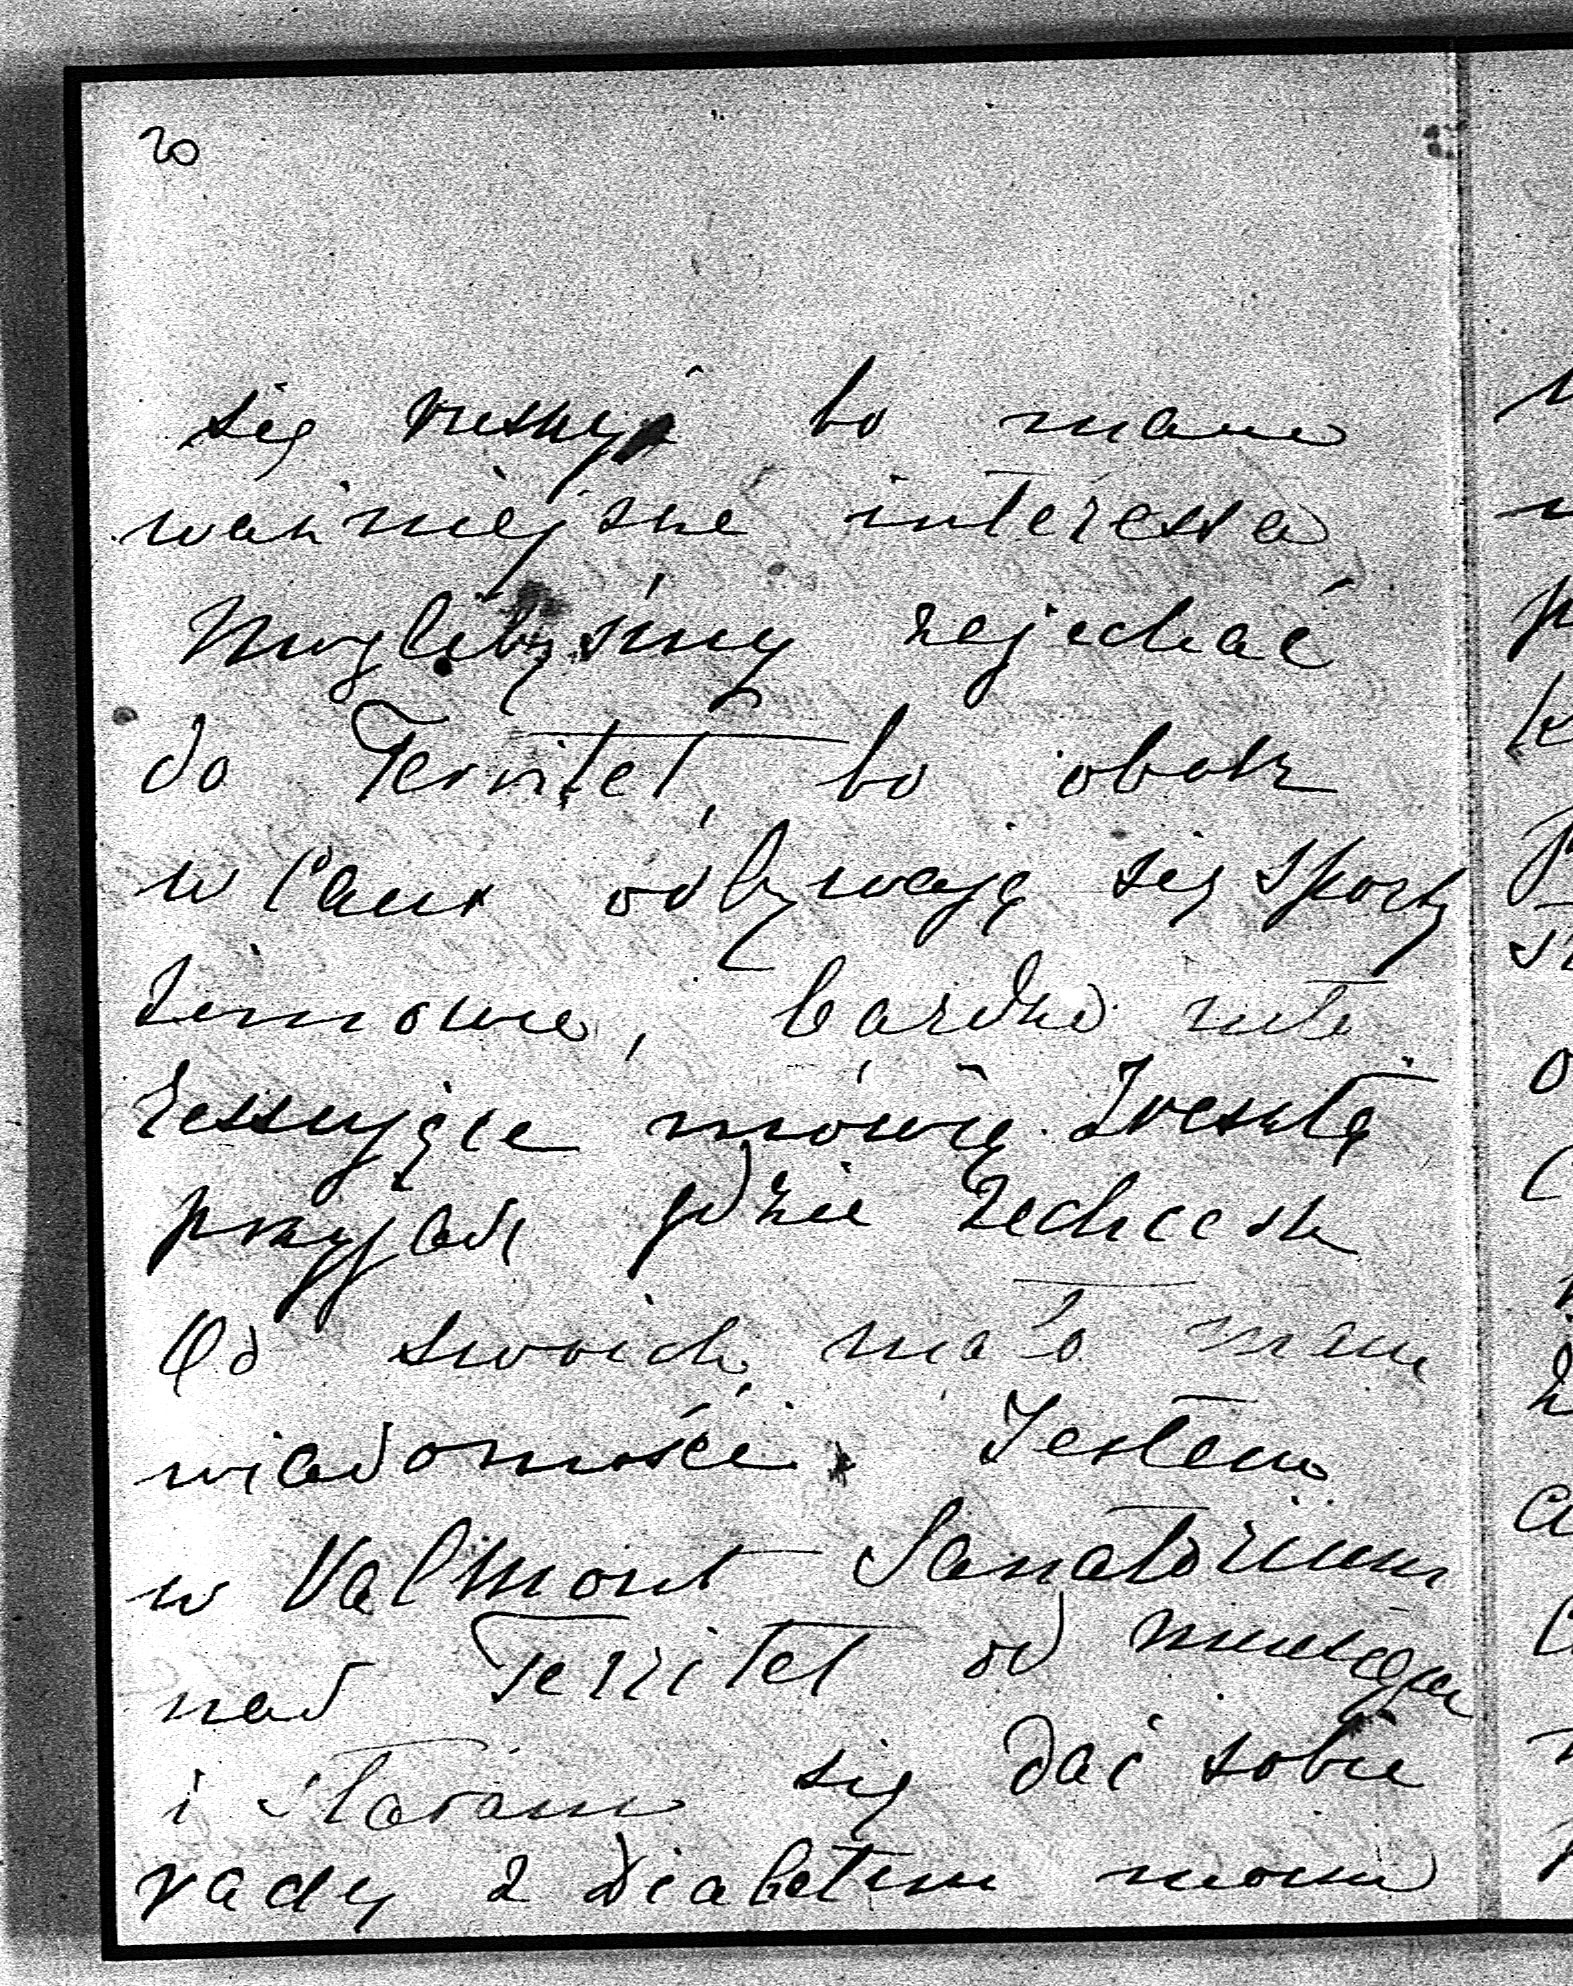 20
się bo mam
ważniejsze interessa
Moglibyśmy zajechać
do Territet, bo obok
w Caux odbywają się sporty
zimowe, bardzo inte
ressujące mówią. Zresztą
przyjadę gdzie zechcesz
Od swoich mało mam
wiadomości. Jestem
w Valmont Sanatorium
nad Territet od miesiąca
i staram się dać sobie
rady z Diabetem moim